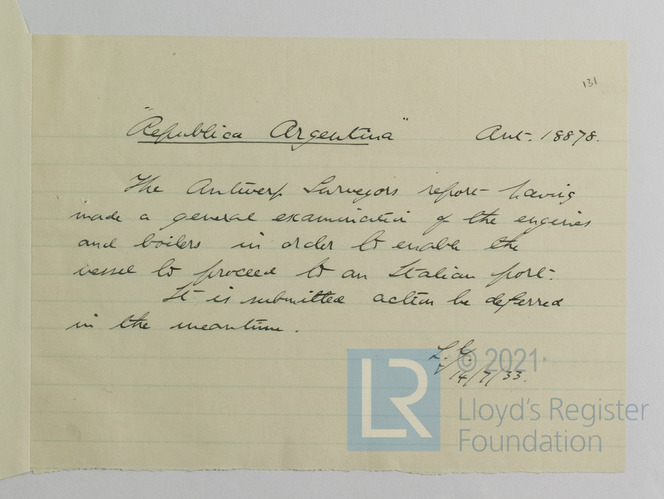 131
"Republica Argentina" Ant. 18878.
The Antwerp Surveyors report having
made a general examination of the engines
and boilers in order to enable the
vessel to proceed to an Italian port.
It is submitted action be deferred
in the meantime.
14/7/33.
© 2021
LR
Lloyd's Register
Foundation